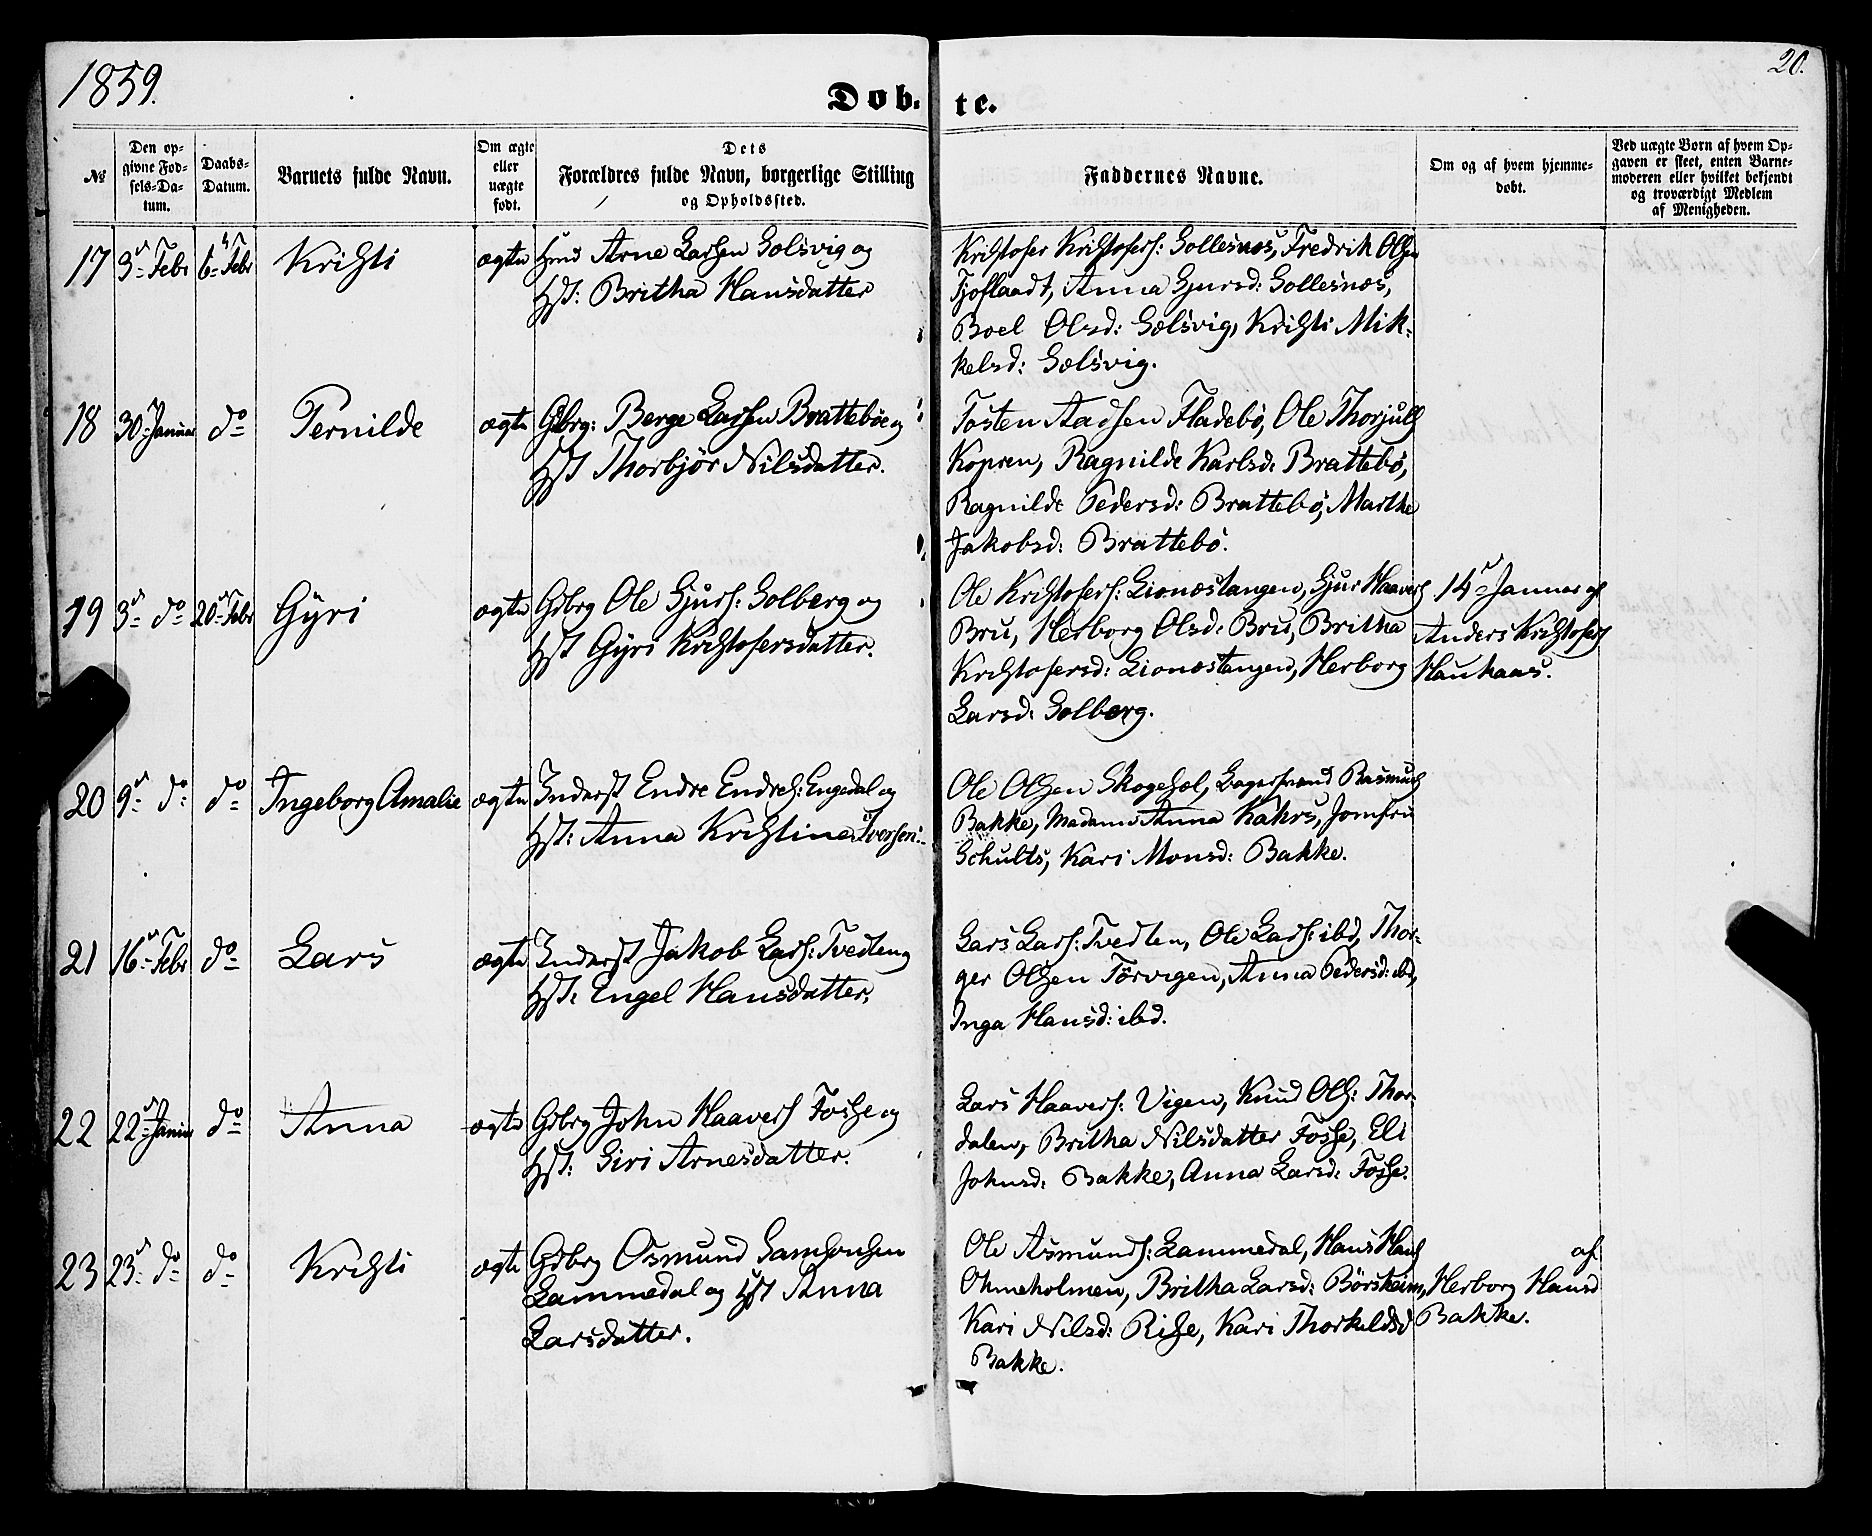 1859.
20.
Døb- te.
№
Den op-
givne Fød-
sels-Da-
tum.
Daabs-
Datum.
Barnets fulde Navn.
Om ægte
eller
uægte
født.
Dets
Forældres fulde Navn, borgerlige Stilling
og Opholdssted.
Faddernes Navne.
Om og af hvem hjemme-
døbt.
Ved uægte Børn af hvem Op-
gaven er skeet, enten Barne-
moderen eller hvilket bekjendt
og troværdigt Medlem
af Menigheden.
17 3- Febr 6- Febr Kristi ægte Hmd Arne Larsen Solsvig og
Hst: Britha Hansdatter
Kristofer Kristofers: Sollesnæs, Fredrik Olsen
Tjoflaadt, Anna Gjursd: Sollesnæs,
Boel Olsd: Solsvig, Kristi Mik-
kelsd: Solsvig.
18 30- Januar do Pernilde ægte Gbrg: Berge Larsen Brattebøe og
Hst Thorbjør Nilsdatter.
Tosten Aadsen Fladebø, Ole Thorjuls
Kopren, Ragnilde Karlsd: Brattebø,
Ragnilde Pedersd: Brattebø, Marthe
Jakobsd: Brattebø.
19 3- do 20- Febr Gÿri ægte Gdbrg Ole Gjurs: Solberg og
Hst Gÿri Kristofersdatter.
Ole Kristofers: Lionæstangen, Gjur Haavers
Bru, Herborg Olsd: Bru, Britha
Kristofersd: Lionæstangen, Herborg
Larsd: Solberg.
14- Januar af
Anders Kristofers
Haukaas.
20 9- do do Ingeborg Amalie ægte Inderst Endre Endres: Engedal og
Hst: Anna Kristine Iversen.
Ole Olsen Skogesol, Bagersvend Rasmus
Bakke, Madame Anna Kahrs, Jomfru
Schults, Kari Monsd: Bakke.
21 16- Febr do Lars ægte Inderst Jakob Lars: Tvedten og
Hst: Engel Hansdatter.
Lars Lars: Tvedten, Ole Lars: ibd, Thor-
ger Olsen Törvigen, Anna Pedersd: ibd,
Inga Hansd: ibd.
22 22- Januar do Anna ægte Gdbrg John Haavers Fosse og
Hst: Siri Arnesdatter.
Lars Haavers: Vigen, Knud Ols: Thor-
dalen, Britha Nilsdatter Fosse, Eli
Johnsd: Bakke, Anna Larsd: Fosse.
23 23- do do Kristi ægte Gdbrg Osmund Samsonsen
Lammedal og Hst Anna
Larsdatter.
Ole Asmunds: Lammedal, Hans Hans
Ohmeholmen, Britha Larsd: Börsheim,
Kari Nilsd: Risse, Kari Thorkeldsd
Bakke.
af
Herborg Hansd
Bakke.